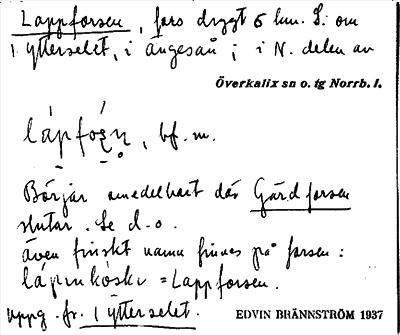 Lappforsen, fors drygt 6 km. S. om
1 ytterselet, i ängesån; i N. delen av
Överkalix sn o. tg Norrb. l.
bf. m.
Börjar omedelbart där Gärdforsen
slutar. Se d.o.
även finskt namn finnes på forsen:
lápinkoski = Lappforsen.
uppg. fr. 1 ytterselet.
EDVIN BRÄNNSTRÖM 1937